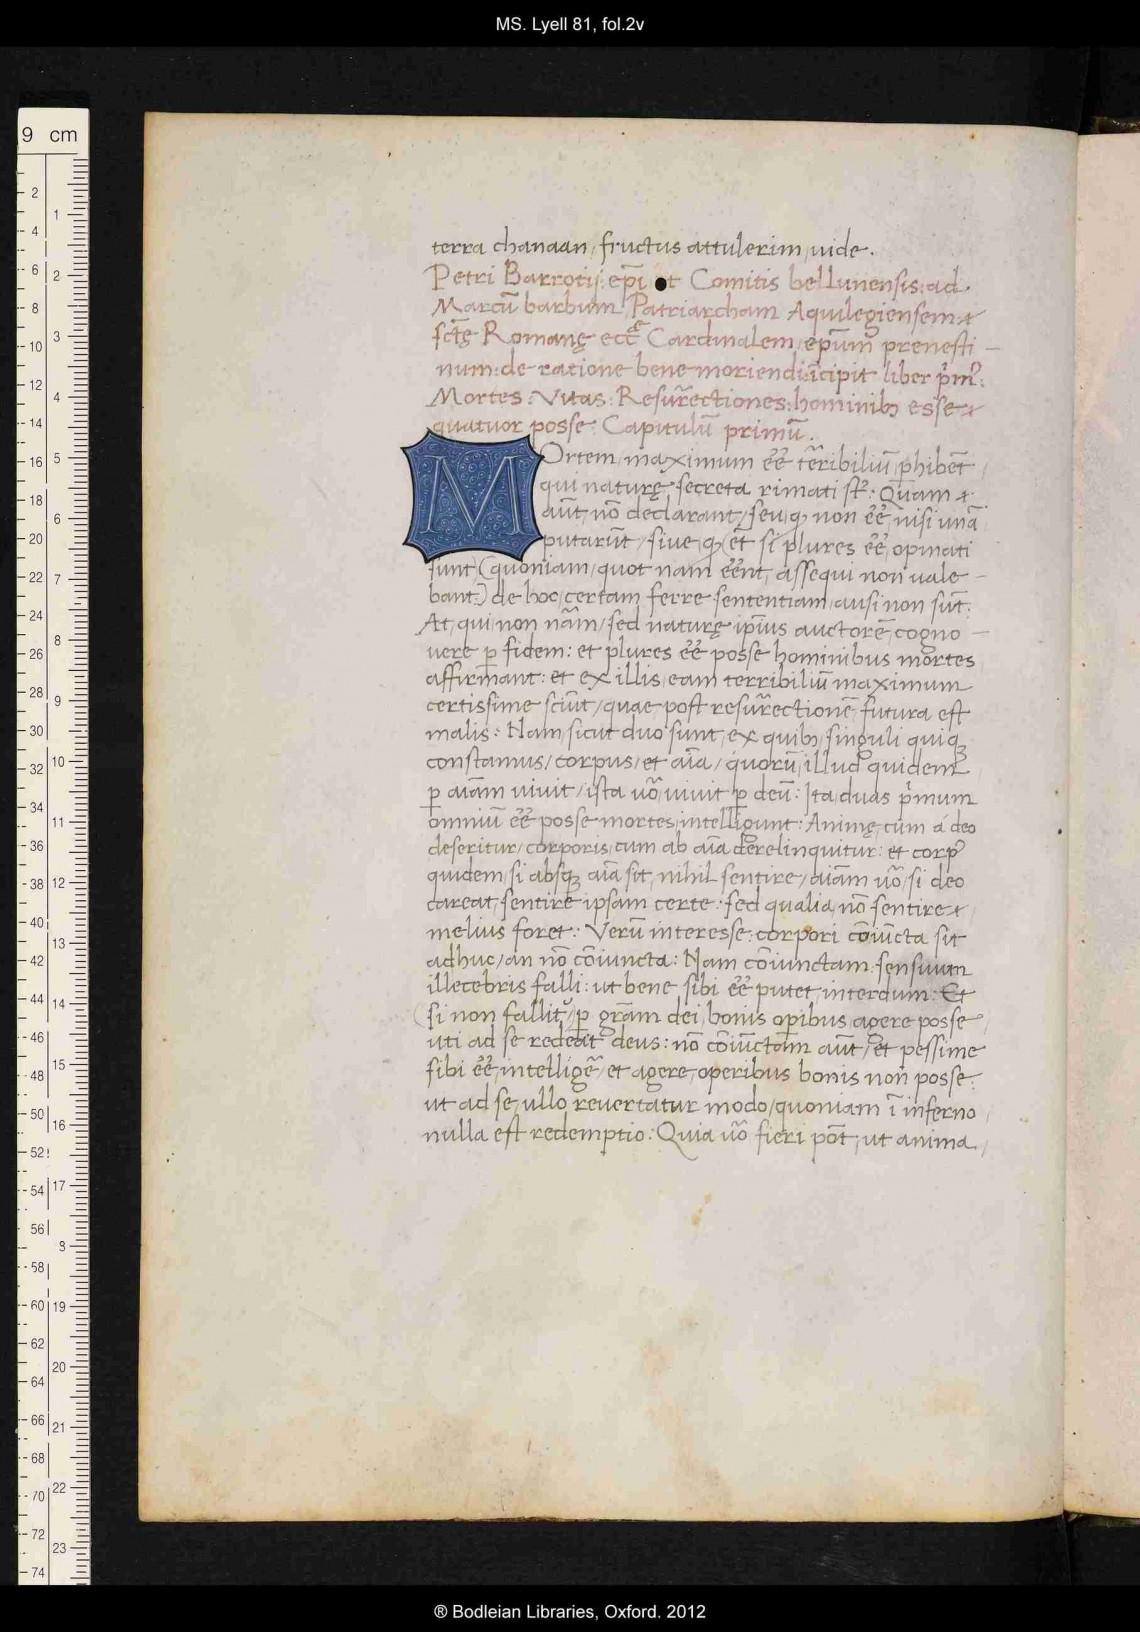 MS. Lyell 81, fol.2v
9 cm
terra chanaan, fructus attulerim, uide.
Petri Barrotij: ep̄i et Comitis bellunensis: ad
Marcū barbum Patriarcham Aquilegiensem &
sctę Romanę eccę Cardinalem, ep̄um prenesti-
num: de ratione bene moriendi: īcipit liber prim9:
Mortes: Vitas: Resurrectiones: hominib; esse &
quatuor posse: Capitulū primū.
MOrtem, maximum eē terribiliū, phibent
qui naturę secreta rimati st: Quam &
aūt, nō declarant, seu q non eē, nisi unā
putarūt, siue, q, et si plures eē, opinati
sunt, (quoniam, quot nam eēnt, assequi non uale-
bant.) de hoc, certam ferre sententiam, ausi non sūt:
At, qui non nām, sed naturę ip̄ius auctorē, cogno-
uere p fidem: et plures eē posse hominibus mortes
affirmant: et ex illis, eam terribiliū maximum
certissime sciūt, quae post resurrectionē, futura est
malis: Nam, sicut duo sunt, ex quib;, singuli quiq;
constamus, corpus, et aīa, quorū, illud quidem
p aīam uiuit, ista uō, uiuit p deū: Ita, duas pmum
omniū eē posse mortes, intelligunt: Animę, cum á deo
deseritur, corporis, cum ab aīa derelinquitur: et corp9
quidem, si absq; aīa sit, nihil sentire, aīam uō, si deo
careat, sentire ipsam certe: sed qualia, nō sentire &
melius foret: Verū interesse: corpori cōiūcta sit
adhuc, an nō cōiuncta: Nam cōiunctam: sensuum
illecebris falli: ut bene sibi eē putet, interdum: Et
si non fallit, p grām dei, bonis opibus, agere posse
uti ad se redeat deus: nō cōiūctam aūt, et pessime
sibi eē, intelligē, et agere, operibus bonis non posse:
ut ad se, ullo reuertatur modo, quoniam ī inferno
nulla est redemptio: Quia uō fieri pōt, ut anima
® Bodleian Libraries, Oxford. 2012